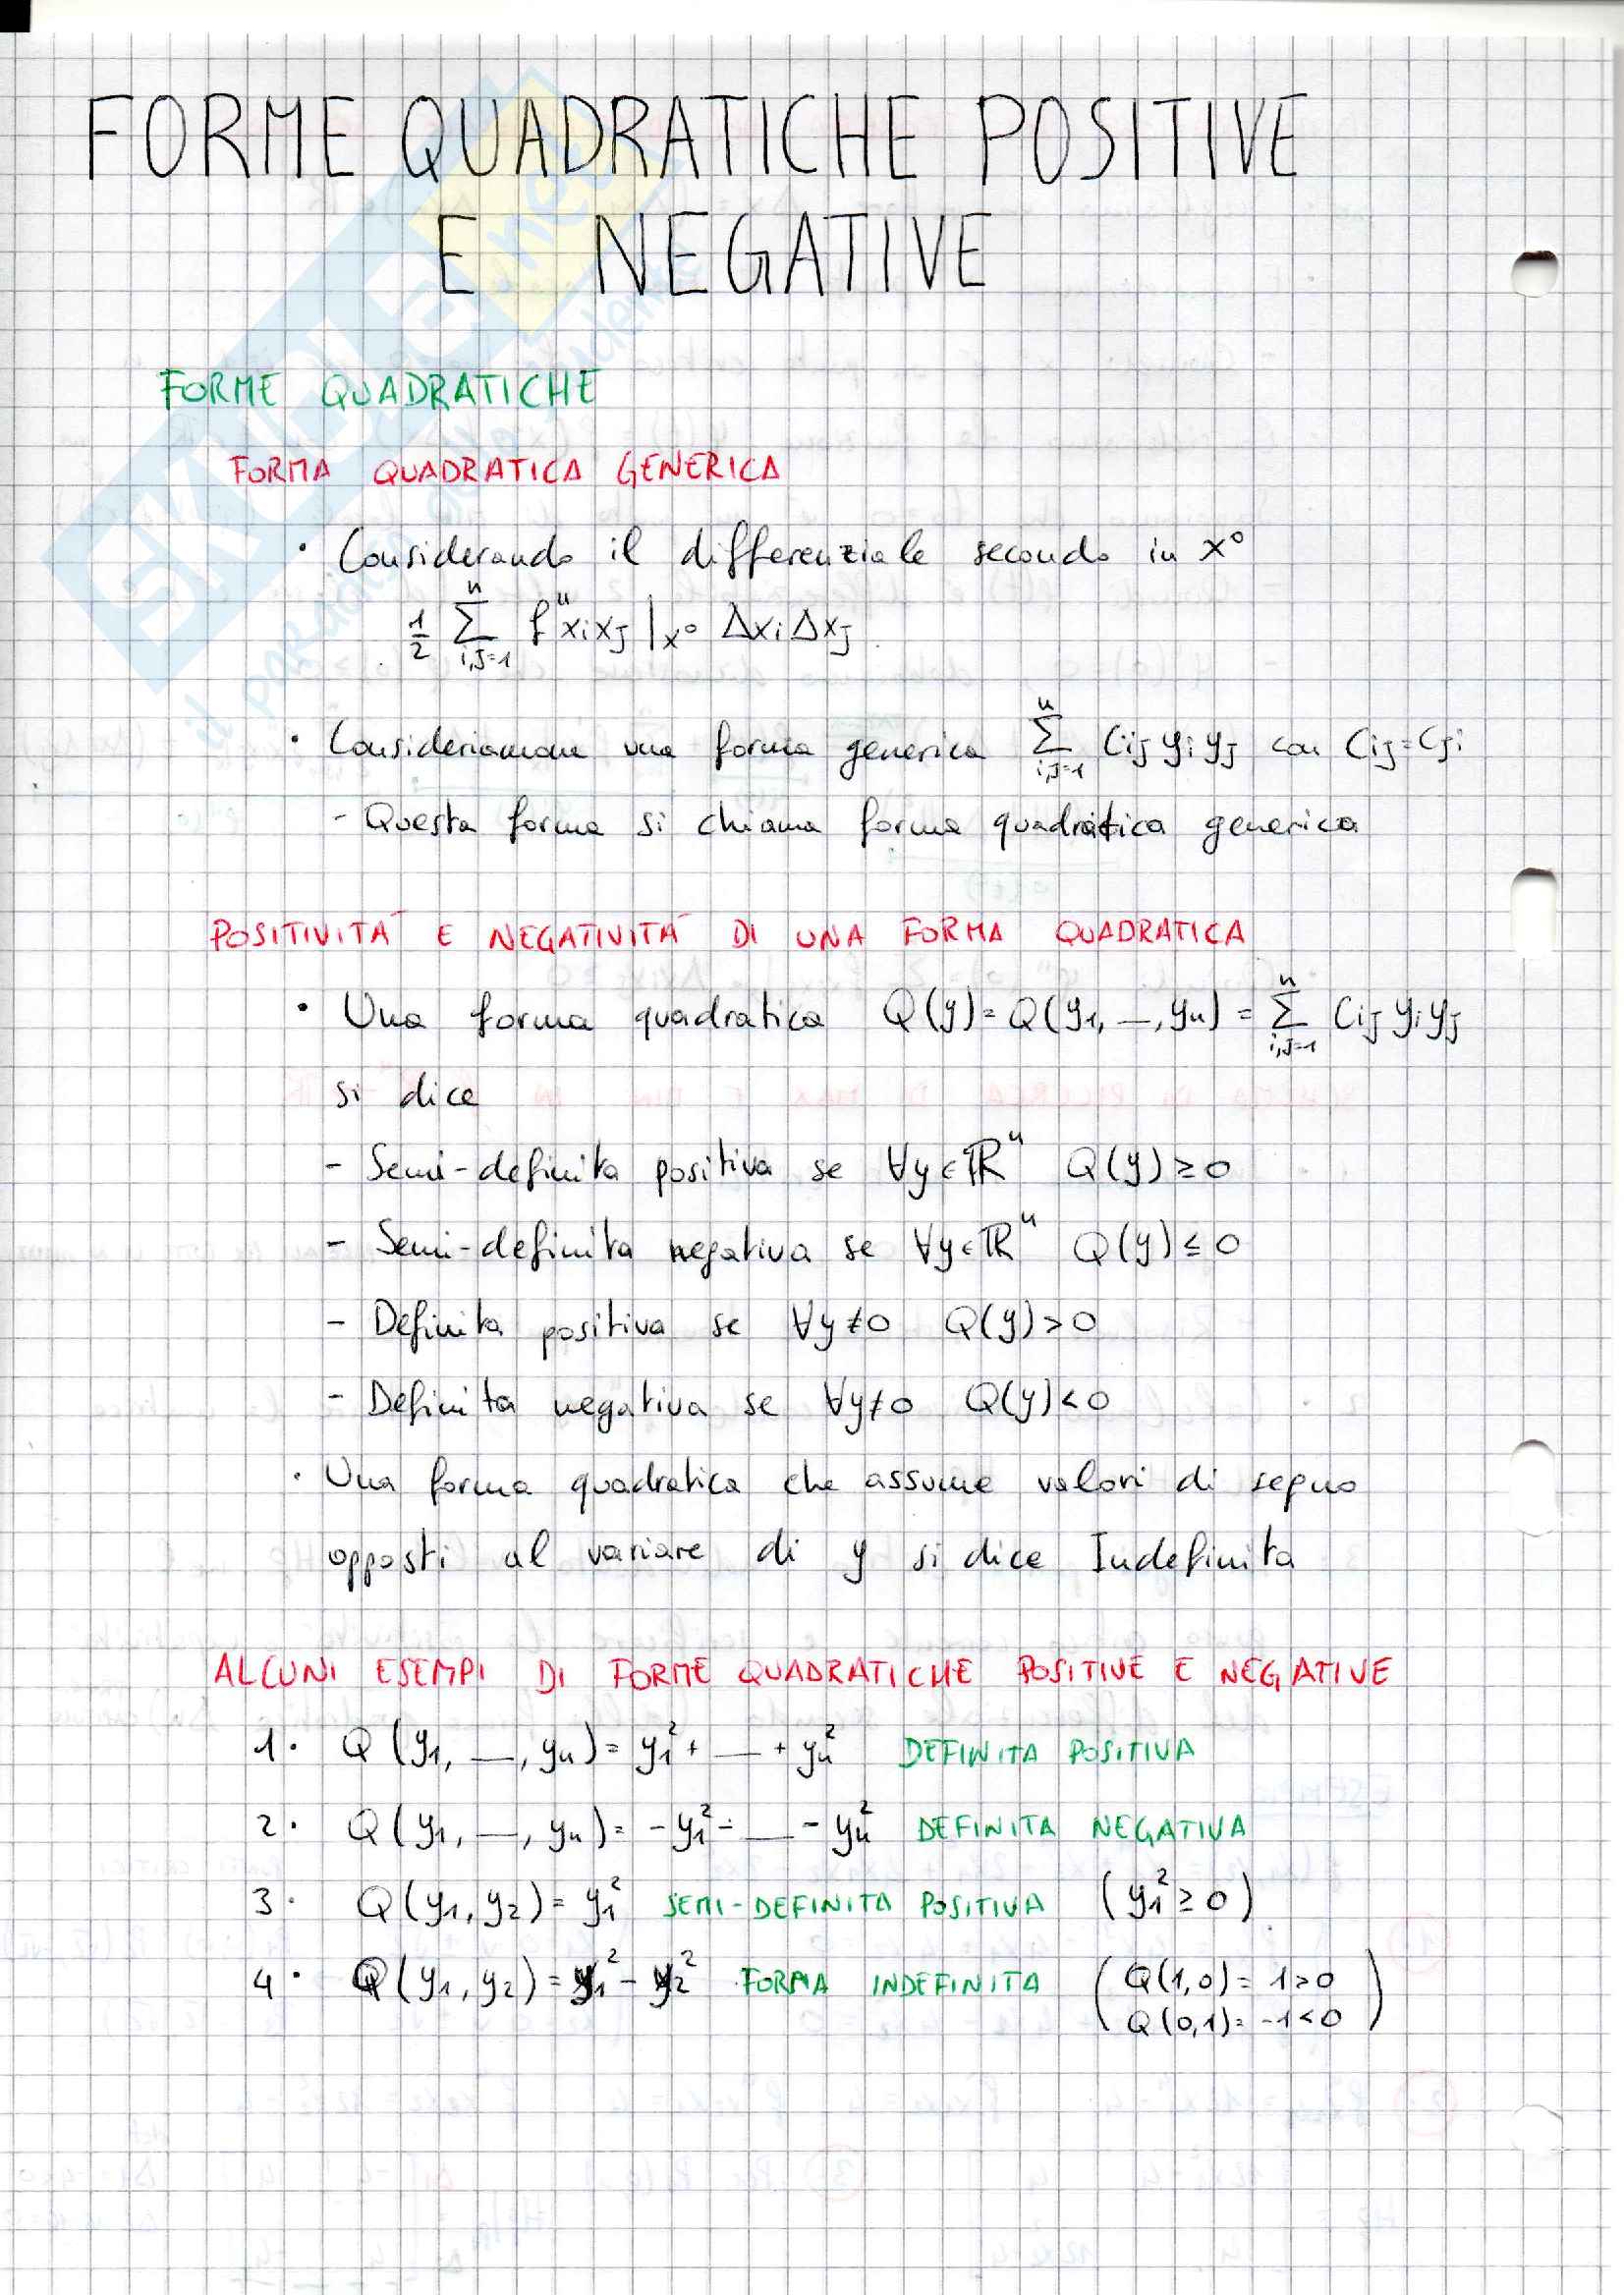 FORME QUADRATICHE POSITIVE
E NEGATIVE
FORME QUADRATICHE
FORMA QUADRATICA GENERICA
• Considerando il differenziale secondo in x⁰
1/2 Σ_{i,j=1}^{n} f''x_i x_j |_{x⁰} Δx_i Δx_j
• Consideriamone una forma generica Σ_{i,j=1}^{n} C_ij y_i y_j con C_ij = C_ji
- Questa forma si chiama forma quadratica generica
POSITIVITA' E NEGATIVITA' DI UNA FORMA QUADRATICA
• Una forma quadratica Q(y) = Q(y₁, —, yₙ) = Σ_{i,j=1}^{n} C_ij y_i y_j
si dice
- Semi-definita positiva se ∀y∈ℝⁿ Q(y) ≥ 0
- Semi-definita negativa se ∀y∈ℝⁿ Q(y) ≤ 0
- Definita positiva se ∀y≠0 Q(y) > 0
- Definita negativa se ∀y≠0 Q(y) < 0
• Una forma quadratica che assume valori di segno
opposti al variare di y si dice Indefinita
ALCUNI ESEMPI DI FORME QUADRATICHE POSITIVE E NEGATIVE
1. Q(y₁, —, yₙ) = y₁² + — + yₙ² DEFINITA POSITIVA
2. Q(y₁, —, yₙ) = -y₁² - — - yₙ² DEFINITA NEGATIVA
3. Q(y₁, y₂) = y₁² SEMI-DEFINITA POSITIVA (y₁² ≥ 0)
4. Q(y₁, y₂) = y₁² - y₂² FORMA INDEFINITA (Q(1,0) = 1 > 0
Q(0,1) = -1 < 0)